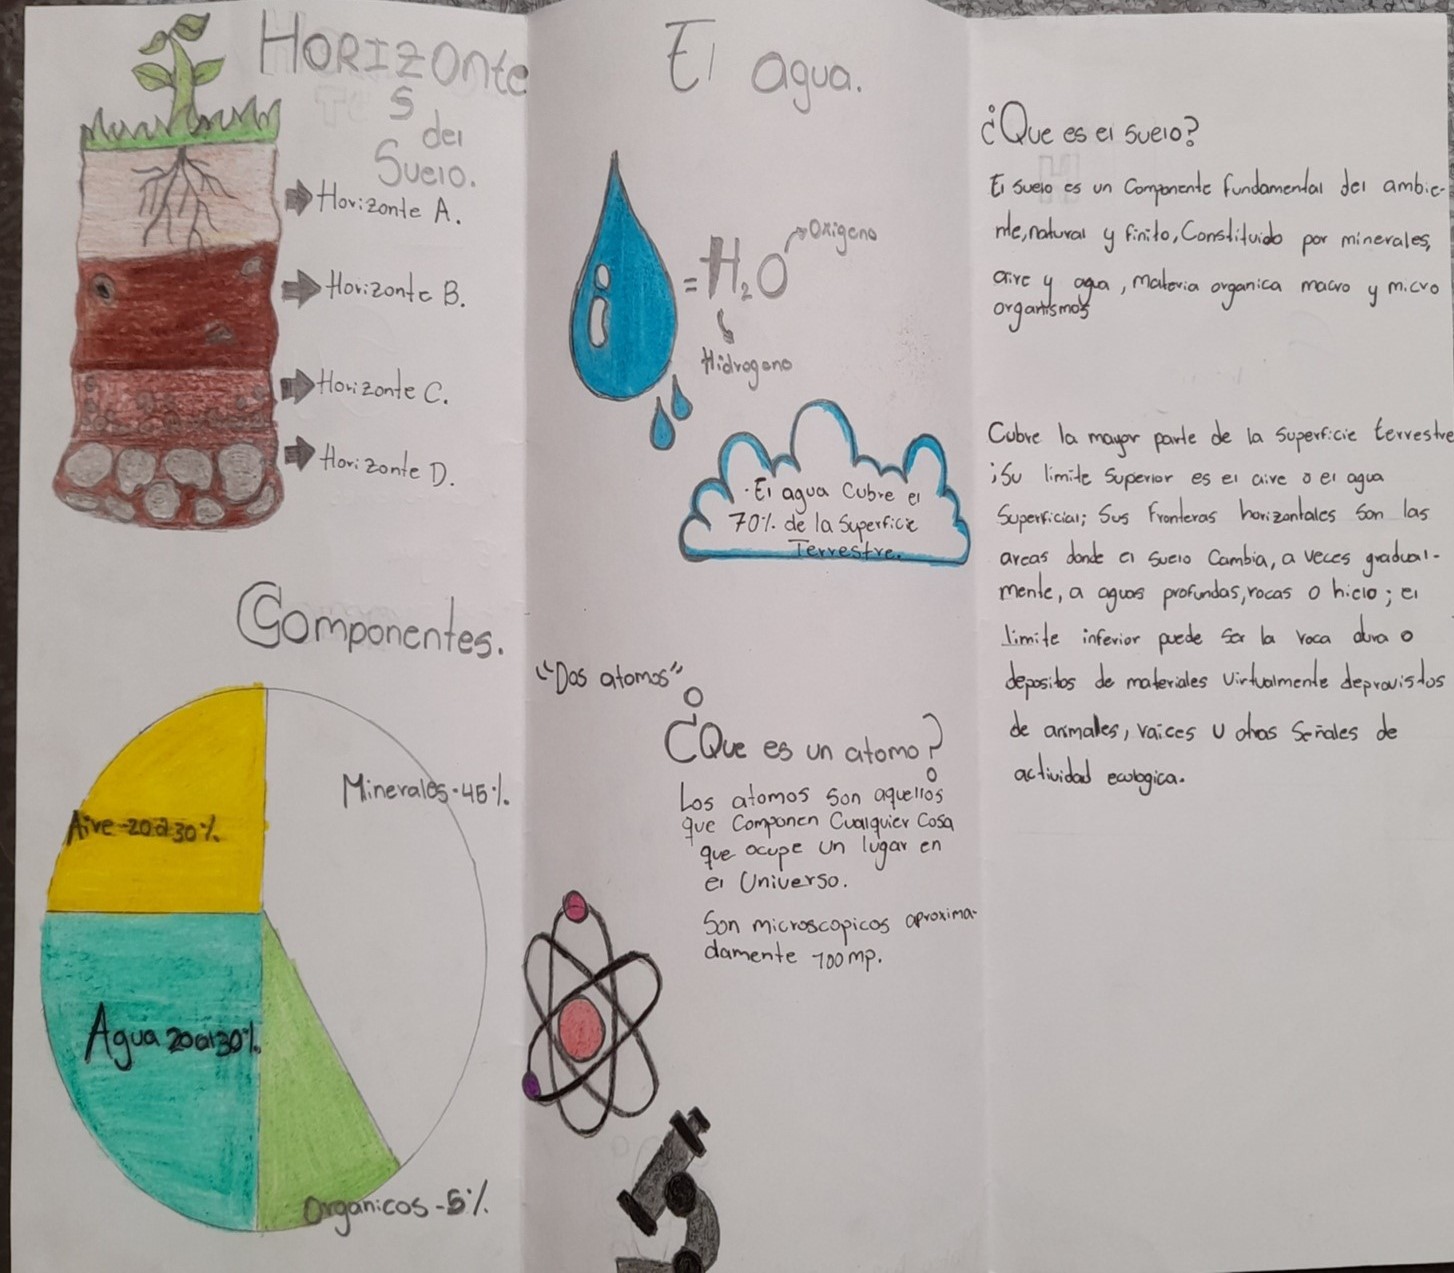 Horizonte
s
del
Suelo.
Horizonte A.
Horizonte B.
Horizonte C.
Horizonte D.
Componentes.
Minerales-45%.
Aire-20 al 30%
Agua 20 al 30%.
Organicos-5%.
El agua.
= H₂O
Oxigeno
Hidrogeno
·El agua Cubre el
70% de la Superficie
Terrestre.
"Dos atomos"
¿Que es un atomo?
Los atomos son aquellos
que componen Cualquier Cosa
que ocupe un lugar en
el Universo.
Son microscopicos aproxima-
damente 100mp.
¿Que es el suelo?
El suelo es un Componente fundamental del ambie-
nte, natural y finito, Constituido por minerales,
aire y agua, Materia organica macro y micro
organismos
Cubre la mayor parte de la Superficie terrestre
;Su limite Superior es el aire o el agua
Superficial; Sus Fronteras horizontales Son las
areas donde el suelo Cambia, a veces gradual-
mente, a aguas profundas, rocas o hielo; el
limite inferior puede ser la roca dura o
depositos de materiales Virtualmente deprovistos
de animales, raices U otras Señales de
actividad ecologica.